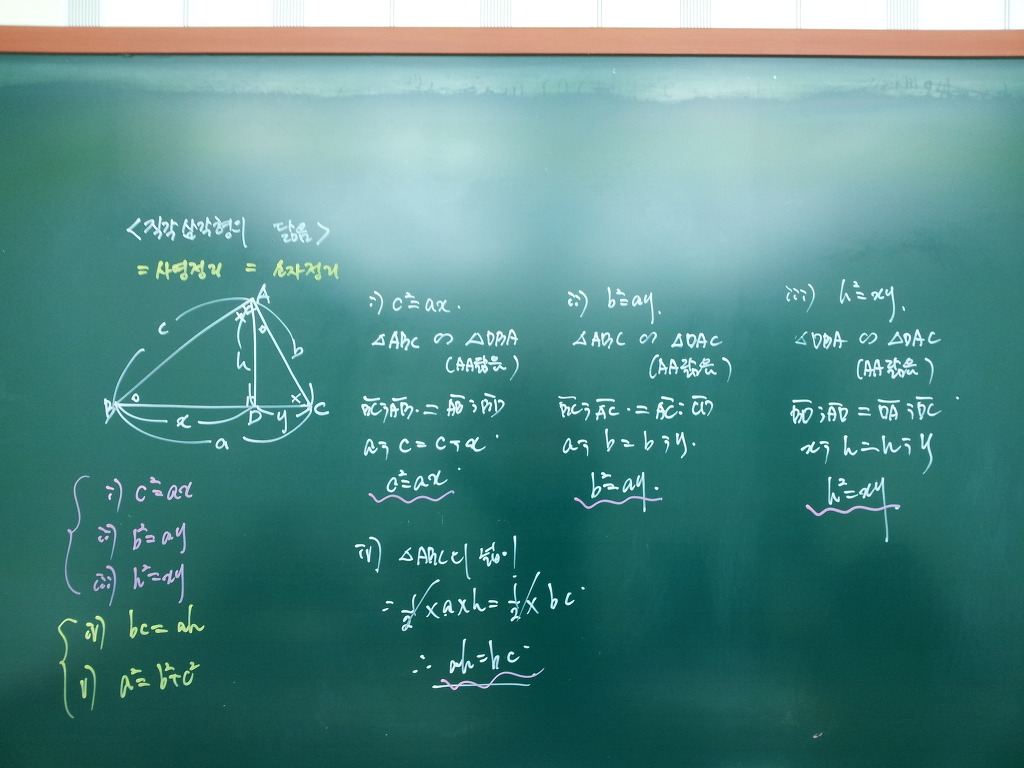 <직각삼각형의 닮음>
= 사영정리 =
A
c
b
h
B
x
D
y
C
a
i) c²=ax
ii) b²=ay
iii) h²=xy
iv) bc=ah
v) a²=b²+c²
i) c²=ax.
△ABC ∽ △DBA
(AA닮음)
BC:AB=AB:BD
a:c=c:x
c²=ax
ii) b²=ay.
△ABC ∽ △DAC
(AA닮음)
BC:AC=AC:CD
a:b=b:y.
b²=ay.
iii) h²=xy.
△DBA ∽ △DAC
(AA닮음)
BD:AD=DA:DC
x:h=h:y
h²=xy
iv) △ABC의 넓이
= 1/2×a×h=1/2×bc
∴ ah=bc